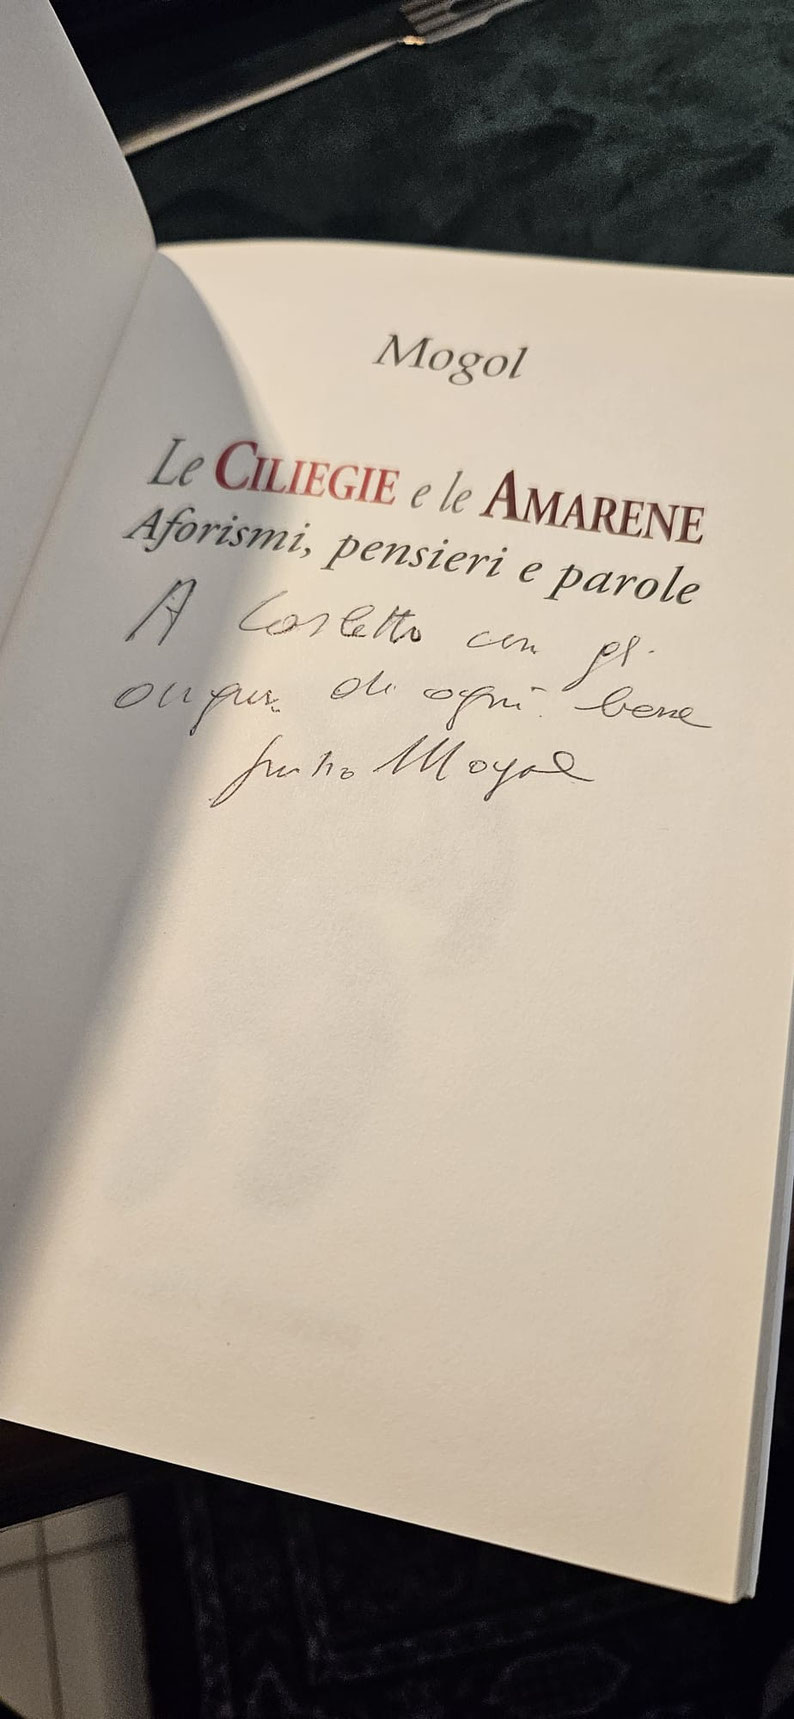 Mogol
Le CILIEGIE e le AMARENE
Aforismi, pensieri e parole
A Carletto con gl.
auguri di ogni bene
Giulio Mogol